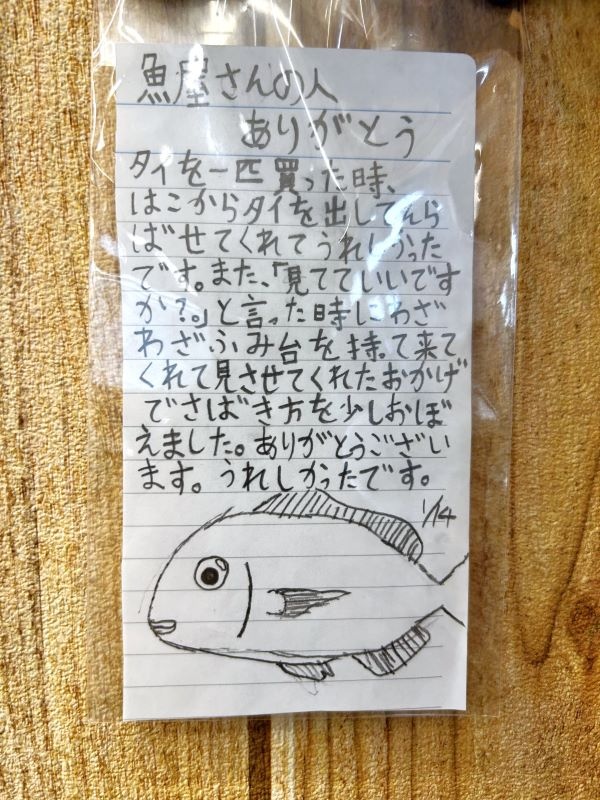 魚屋さんの人
ありがとう
タイを一匹買った時、
はこからタイを出してえら
ばせてくれてうれしかった
です。また、「見てていいです
か?。」と言った時にわざ
わざふみ台を持って来て
くれて見させてくれたおかげ
でさばき方を少しおぼ
えました。ありがとうござい
ます。うれしかったです。
1/14